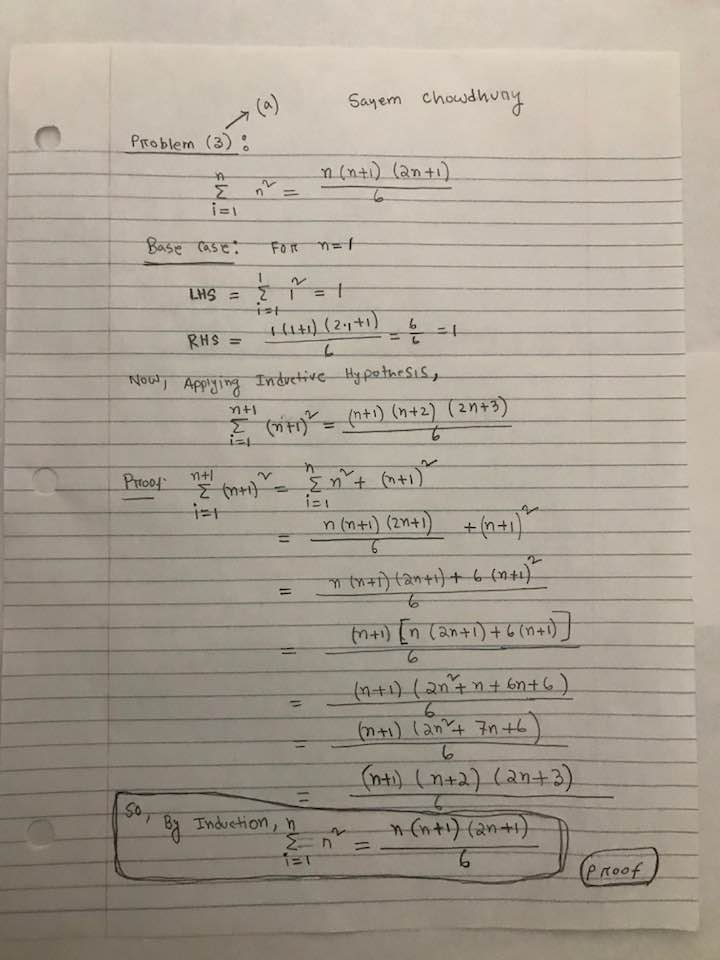 (a) Sayem Chowdhury
Problem (3):
n
Σ n² = n(n+1)(2n+1)/6
i=1
Base Case: For n=1
LHS = 1Σi=1 i² = 1
RHS = 1(1+1)(2·1+1)/6 = 6/6 = 1
Now, Applying Inductive Hypothesis,
n+1
Σ (n+1)² = (n+1)(n+2)(2n+3)/6
i=1
Proof: n+1Σi=1 (n+1)² = nΣi=1 n² + (n+1)²
= n(n+1)(2n+1)/6 + (n+1)²
= n(n+1)(2n+1) + 6(n+1)²/6
= (n+1)[n(2n+1)+6(n+1)]/6
= (n+1)(2n²+n+6n+6)/6
= (n+1)(2n²+7n+6)/6
= (n+1)(n+2)(2n+3)/6
So, By Induction, nΣi=1 n² = n(n+1)(2n+1)/6
Proof